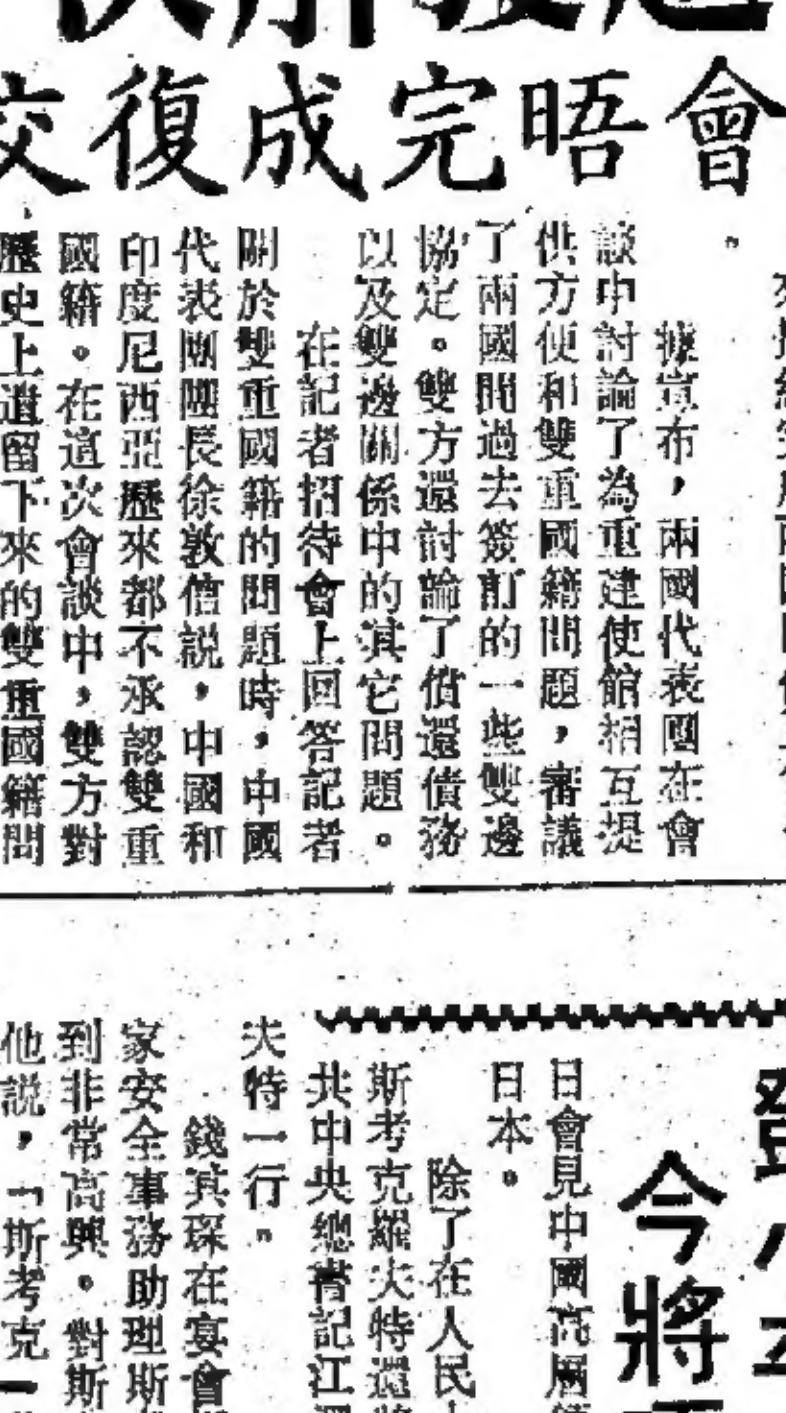 會晤完成復交
據宣布，兩國代表團在會
談中討論了為重建使館相互提
供方便和雙重國籍問題，審議
了兩國間過去簽訂的一些雙邊
協定。雙方還討論了償還債務
以及雙邊關係中的其它問題。
在記者招待會上回答記者
關於雙重國籍的問題時，中國
代表團團長徐敦信説，中國和
印度尼西亞歷來都不承認雙重
國籍。在這次會談中，雙方對
歷史上遺留下來的雙重國籍問
今將
日會見中國高層領
日本。
除了在人民
斯考克羅夫特還將
共中央總書記江澤
夫特一行。
錢其琛在宴會
家安全事務助理斯
到非常高興。對斯
他説，「斯考克